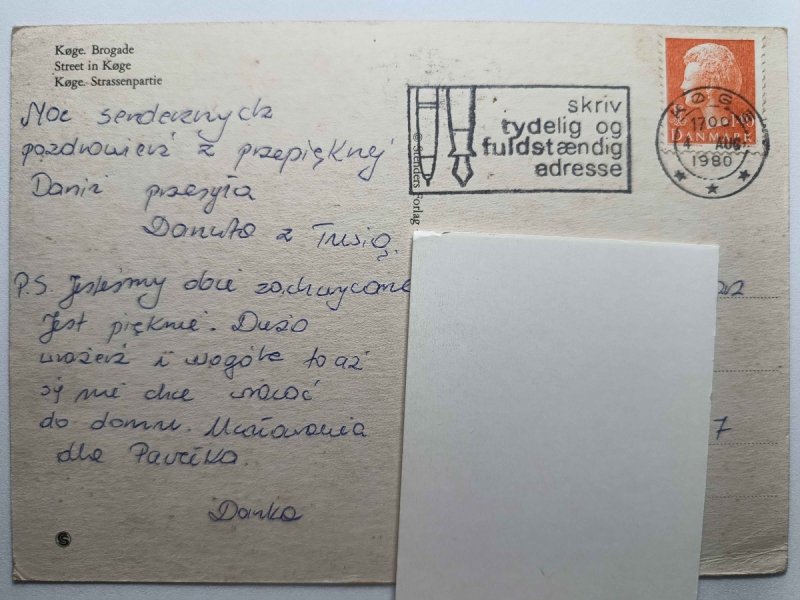 Køge. Brogade
Street in Køge
Køge. Strassenpartie
Moc serdecznych
pozdrowień z przepięknej
Danii przesyła
Danuta z Trusią.
P.S. Jesteśmy obie zachwycone
Jest pięknie. Dużo
wrażeń i wogóle to aż
się nie chce wracać
do domu. Ucałowania
dla Pawełka.
Danka
skriv
tydelig og
fuldstændig
adresse
© Stenders Forlag
DANMARK
KØGE
17 00
4 AUG
1980
7